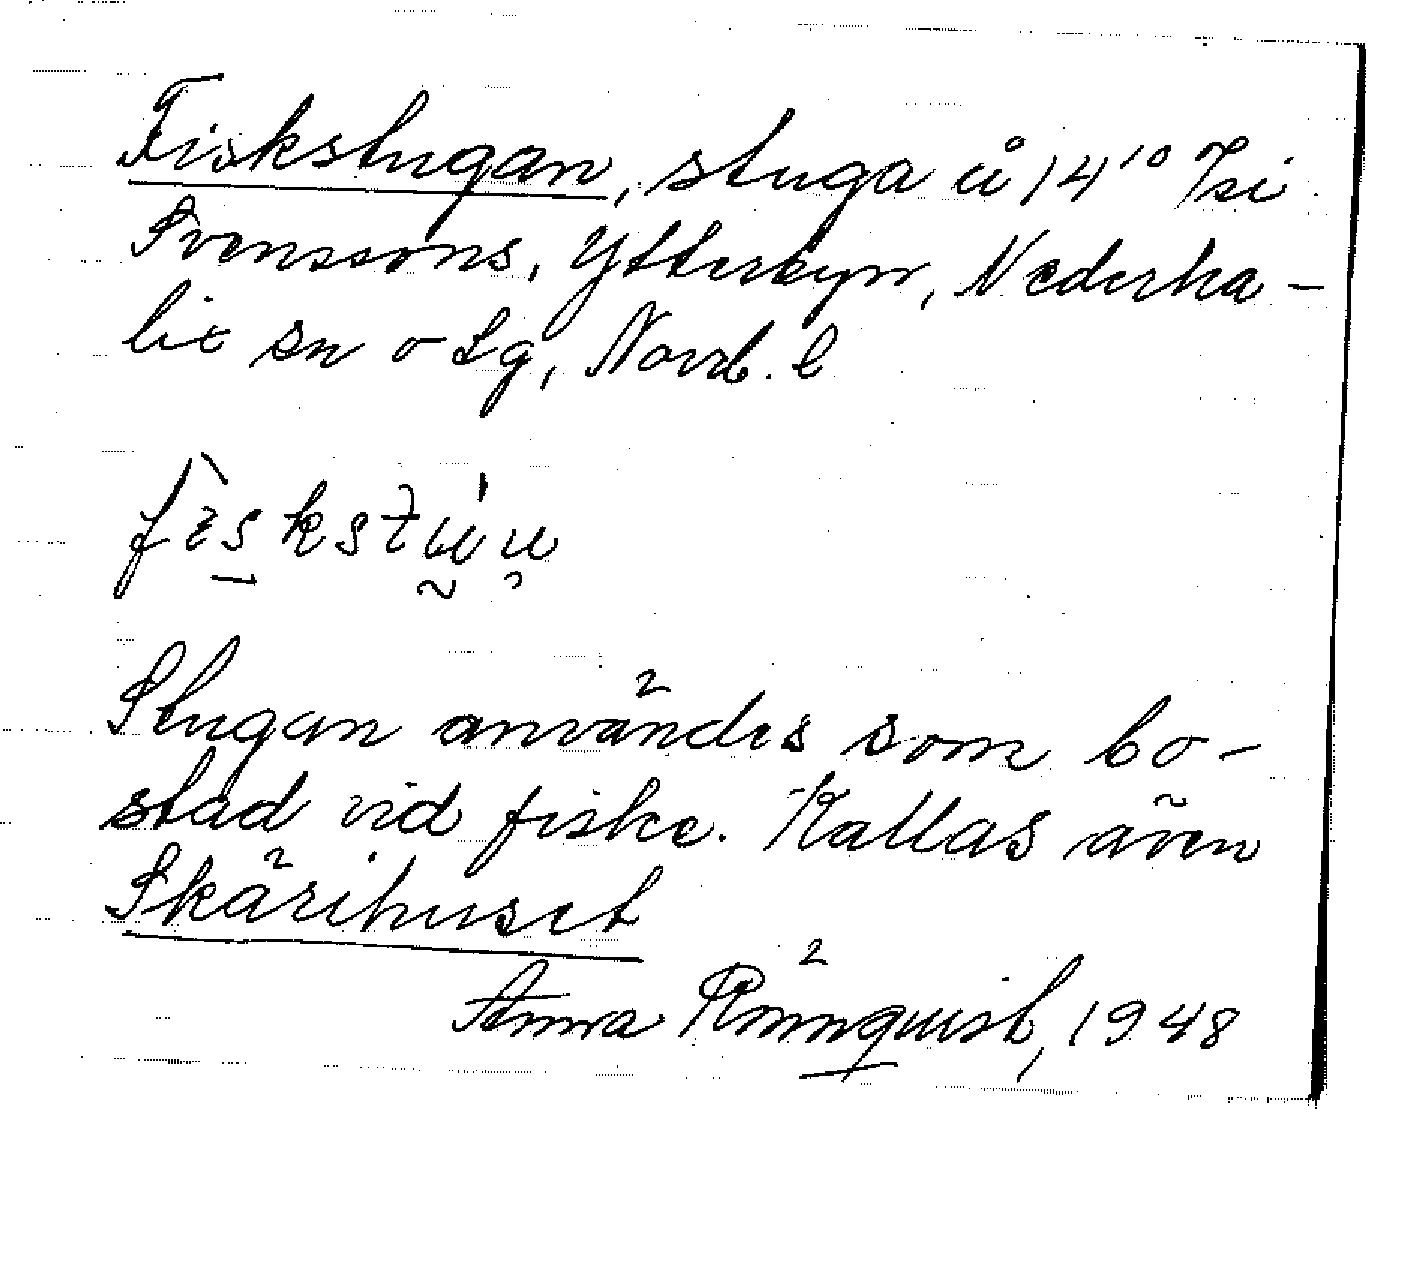 Fiskstugan, stuga å 14¹⁰
Svenssons, Ytterbyn, Nederka-
lix sn o Lg, Norrb. l
Stugan användes som bo-
stad vid fiske. Kallas även
Skärihuset
Anna Rönnquist, 1948